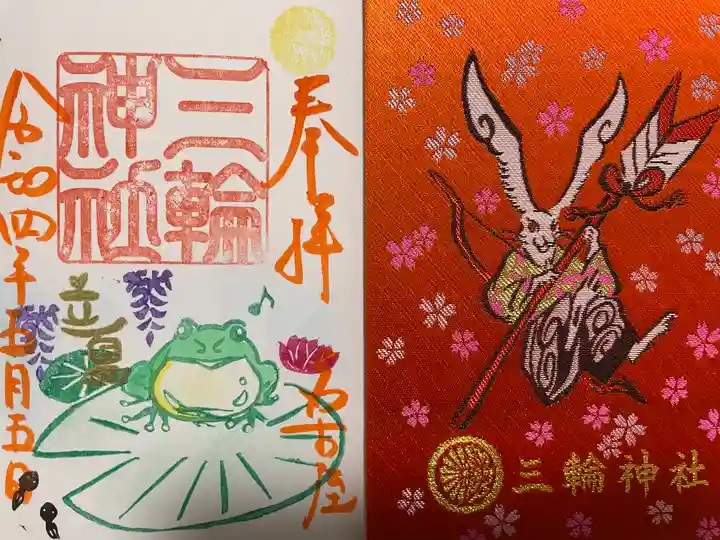 奉拝
名古屋
三輪
神社
立夏
令和四年五月五日
三輪神社